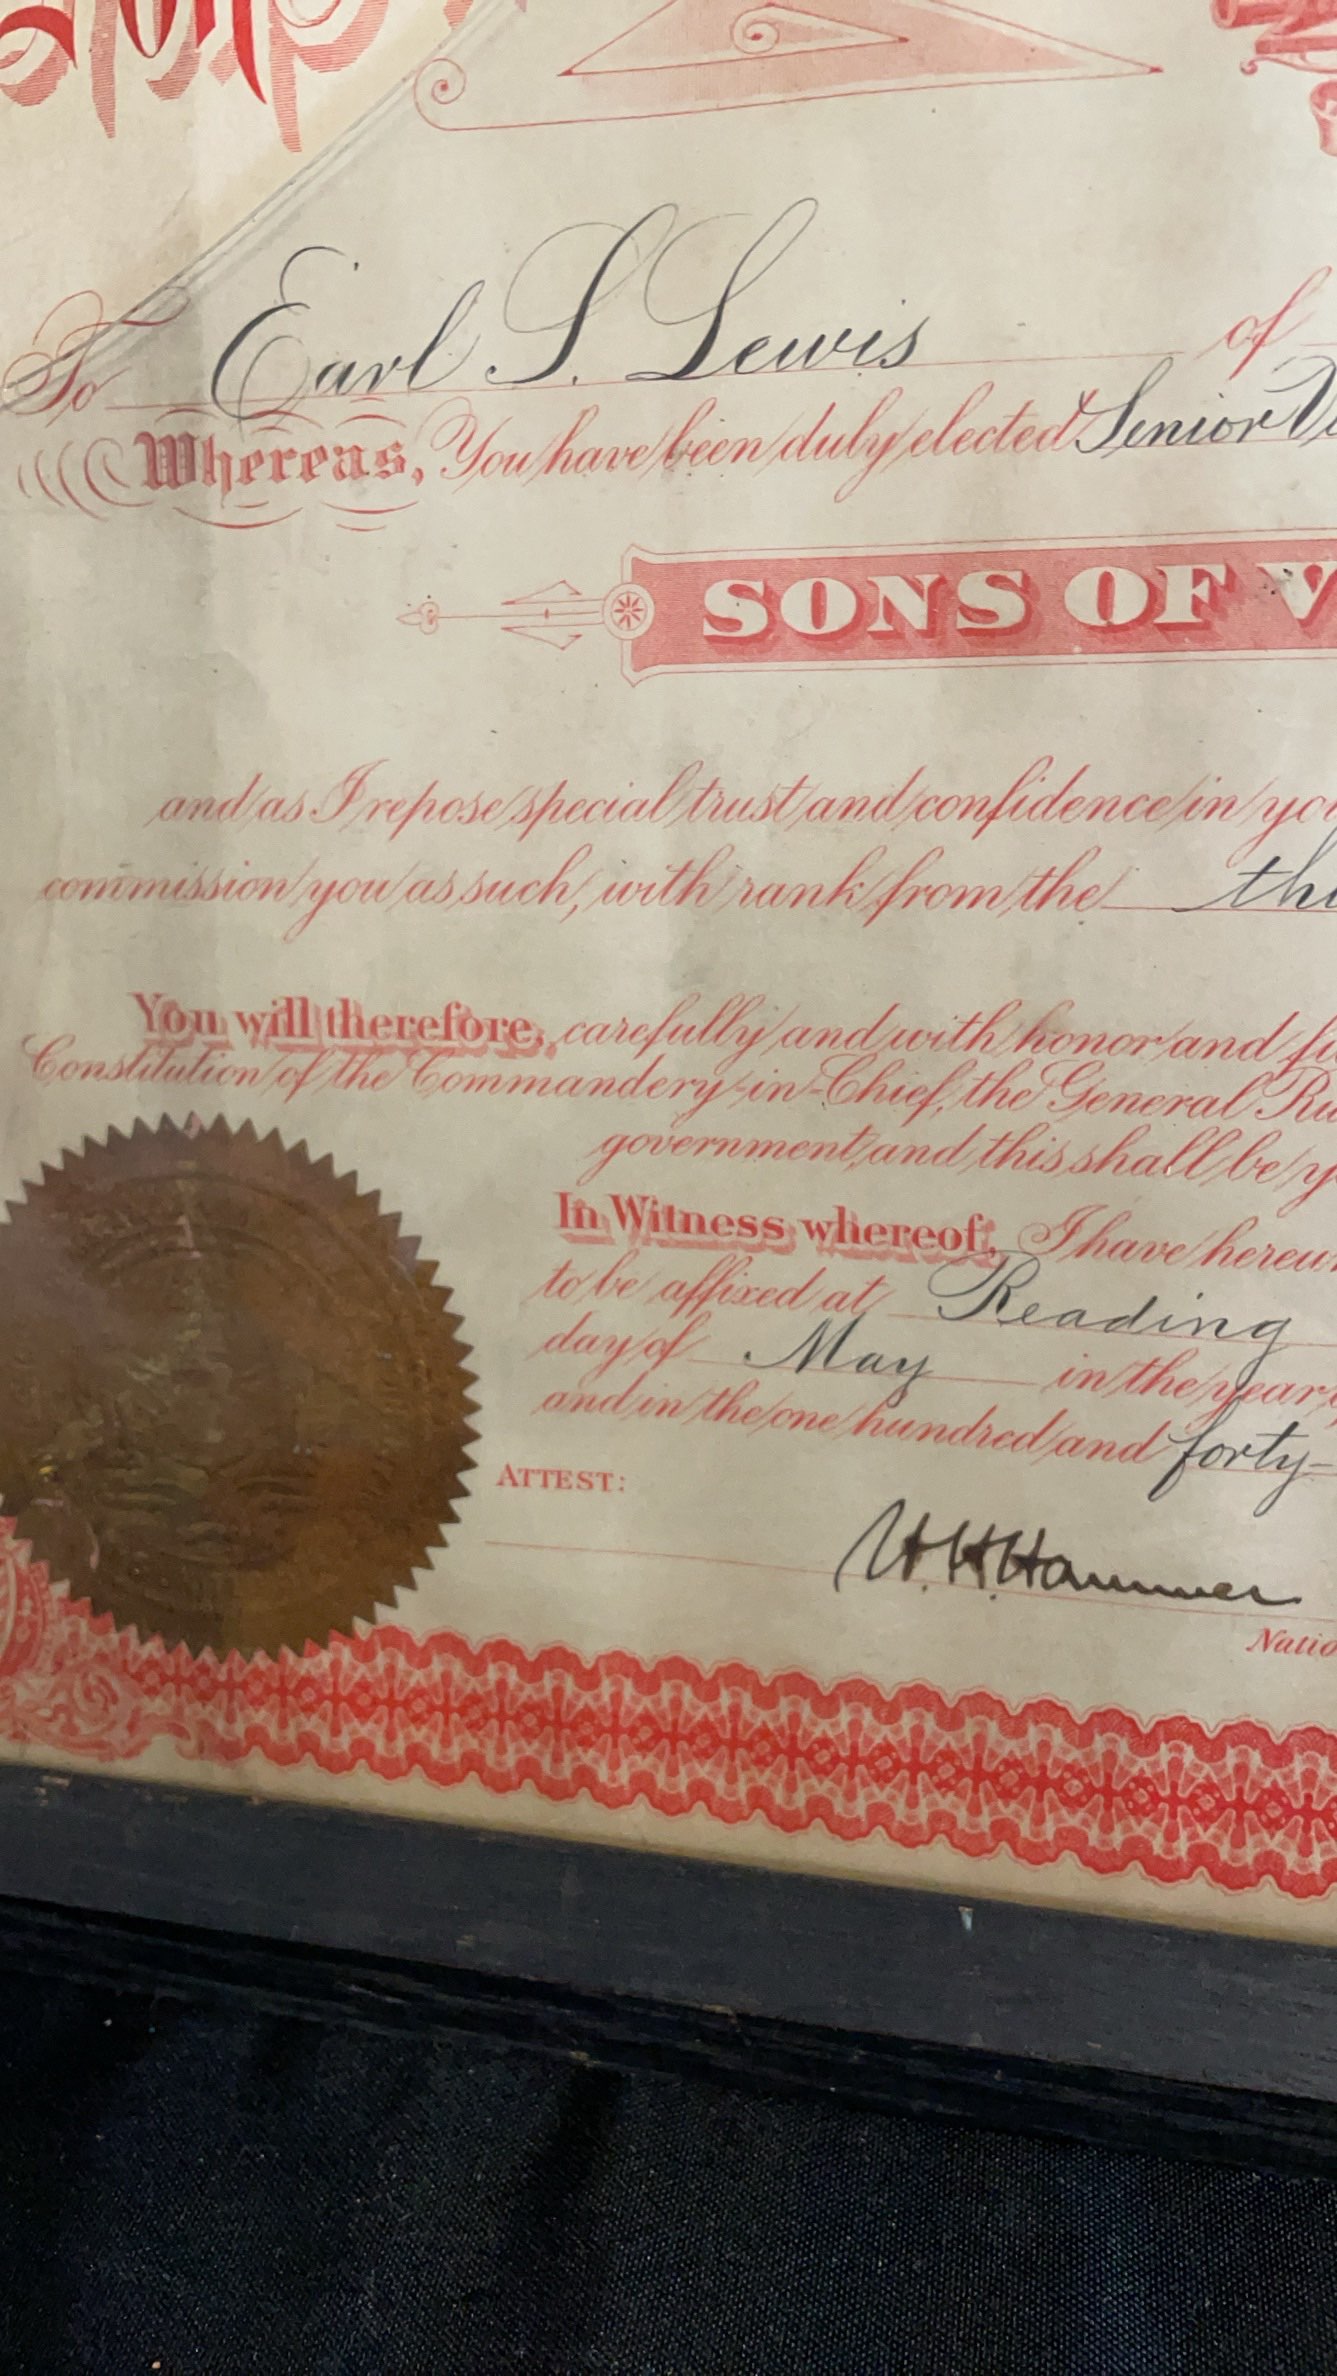 To Earl S. Lewis of
Whereas, You have been duly elected Senior
SONS OF V
and as I repose special trust and confidence in
commission you as such, with rank from the
You will therefore, carefully and with honor and
Constitution of the Commandery-in-Chief, the General
government, and this shall be
In Witness whereof, I have
to be affixed at Reading
day of May in the year
and in the one hundred and forty-
ATTEST:
H. H. Hammer